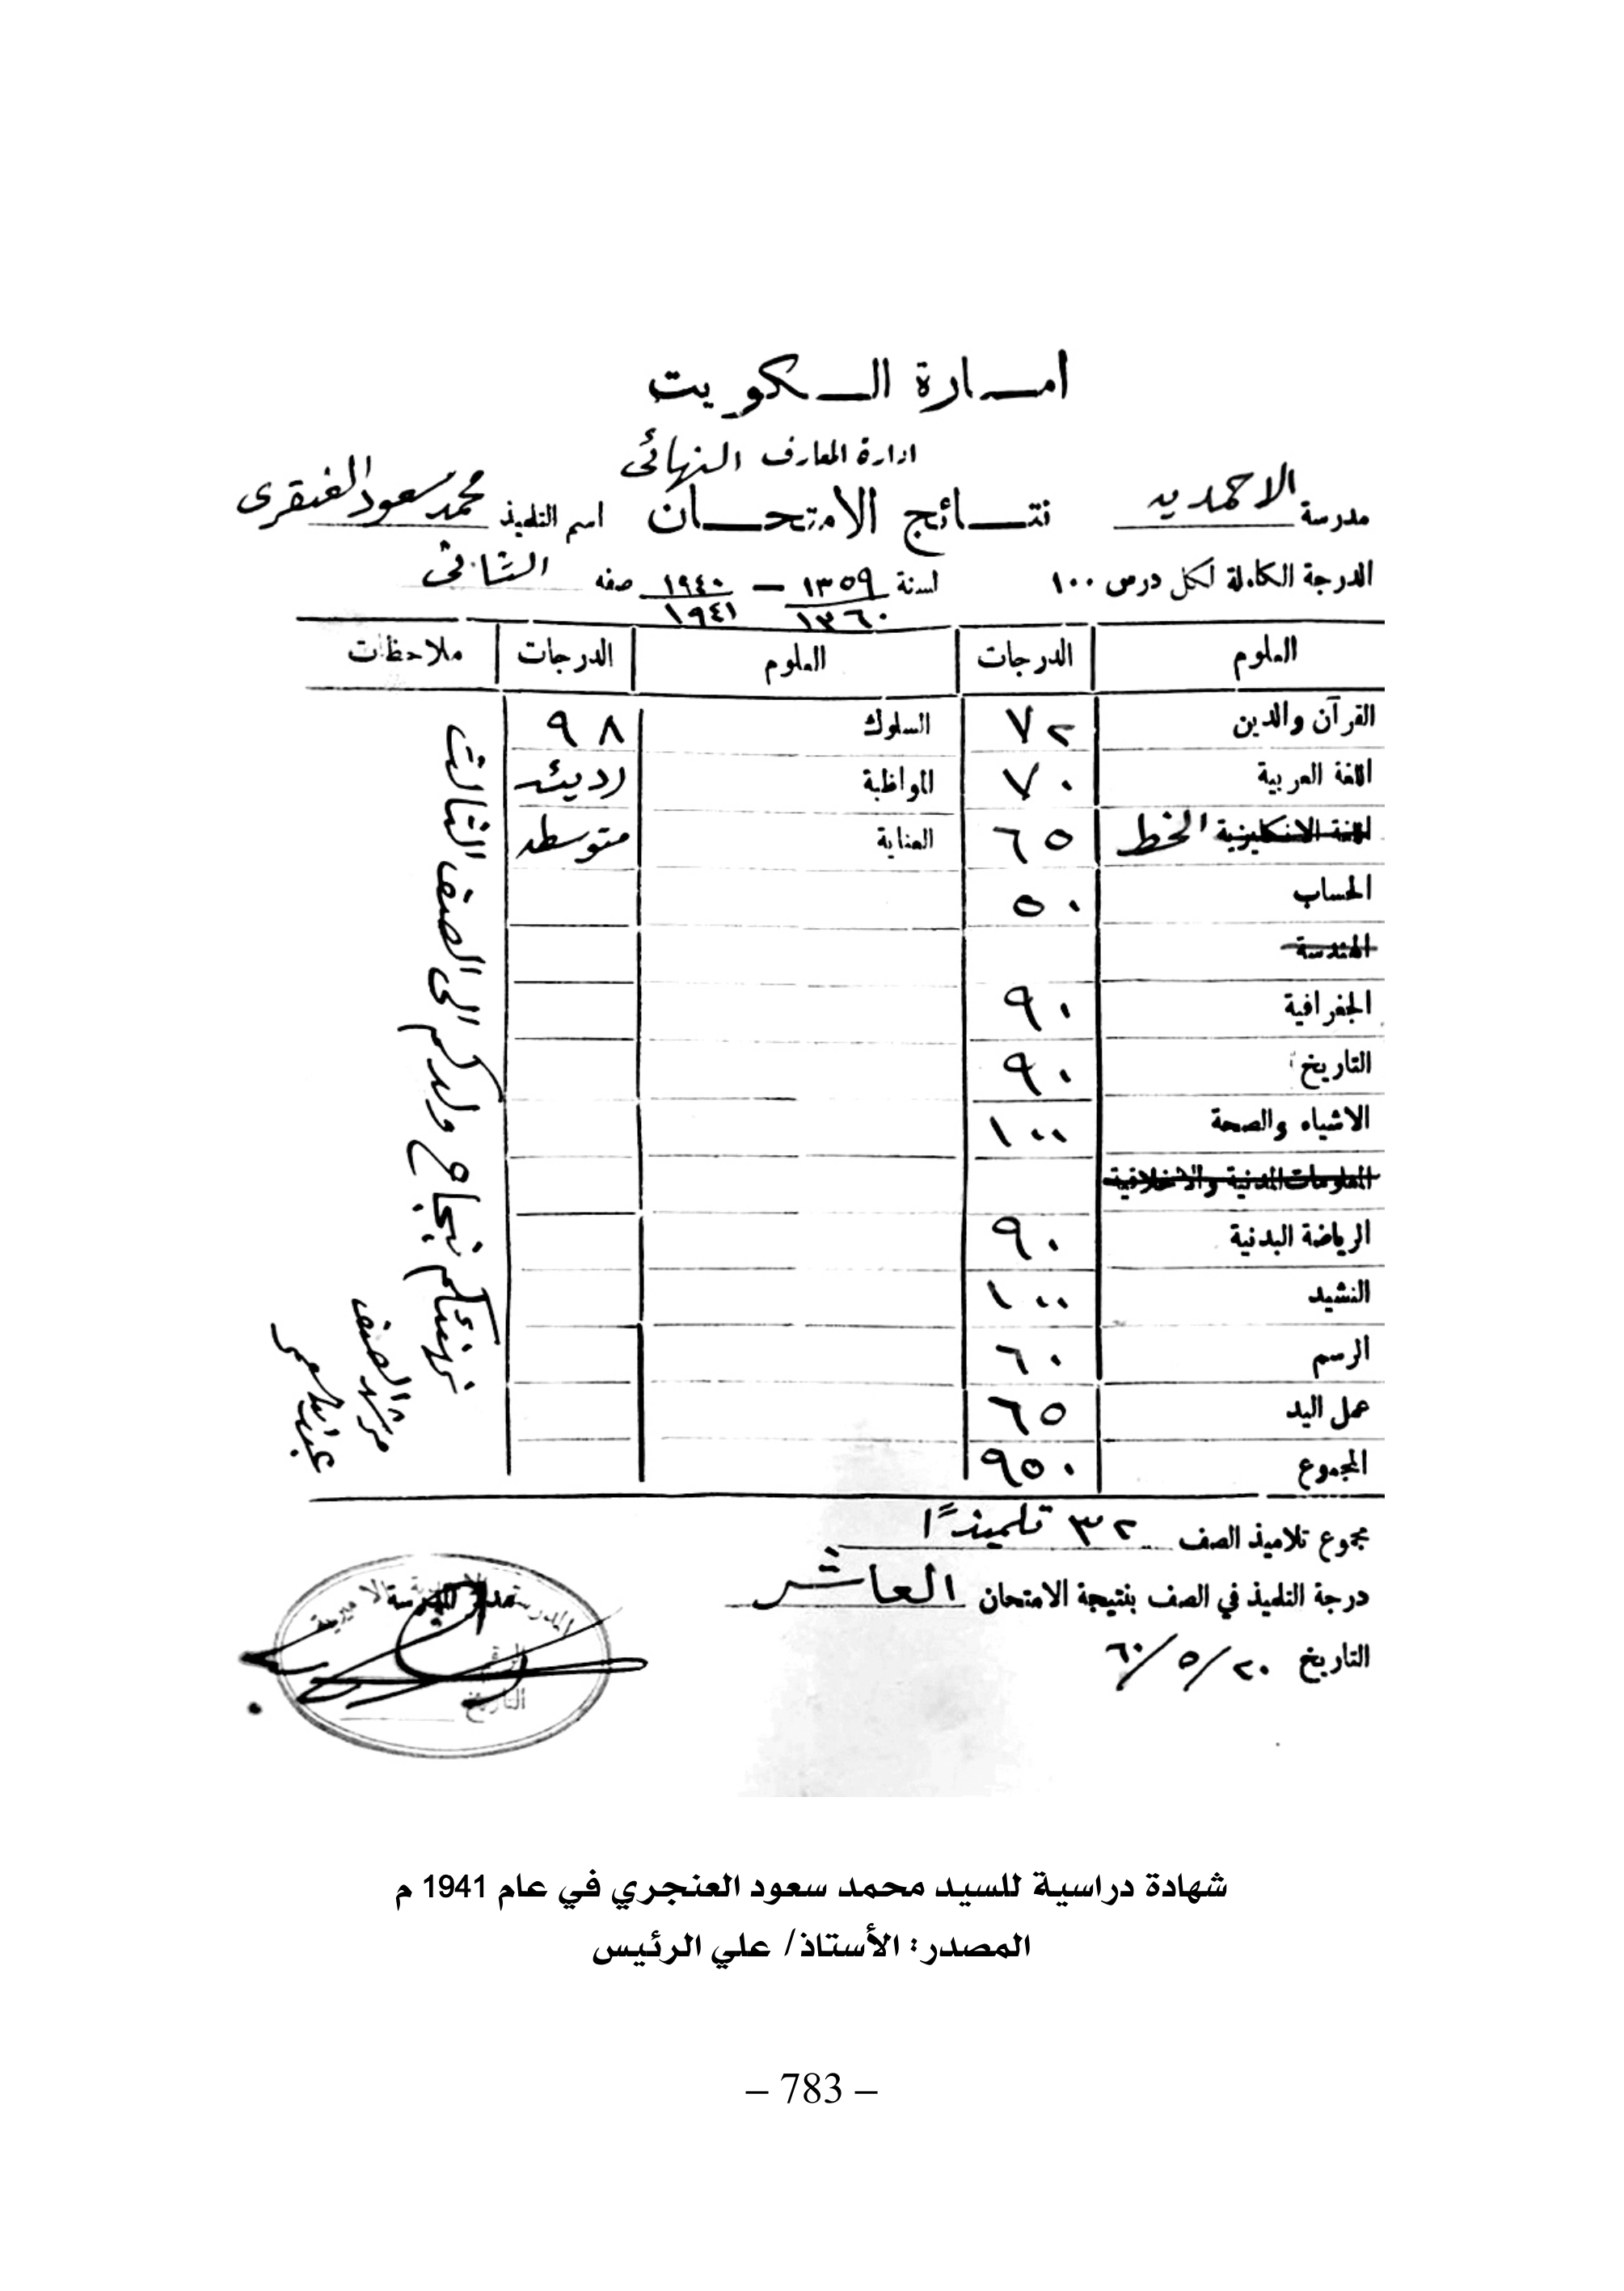 امارة الكويت
ادارة المعارف
مدرسة الاحمديه نتائج الامتحان النهائى اسم التلميذ محمد سعود العنقرى
الدرجة الكاملة لكل درس ١٠٠ لسنة ١٣٥٩/١٣٦٠ — ١٩٤٠/١٩٤١ صفه الثانى
العلوم الدرجات العلوم الدرجات ملاحظات
القرآن والدين ٧٢ السلوك ٩٨
اللغة العربية ٧٠ المواظبة رديئه
اللغة الانكليزية الخط ٦٥ العناية متوسطه
الحساب ٥٠
الهندسة
الجغرافية ٩٠
التاريخ ٩٠
الاشياء والصحة ١٠٠
المعلومات المدنية والاخلاقية
الرياضة البدنية ٩٠
النشيد ١٠٠
الرسم ٦٠
عمل اليد ٦٥
المجموع ٩٥٠
نهنئكم بنجاح ولدكم الى الصف الثالث
مرشد الصف
مجموع تلاميذ الصف ٣٢ تلميذًا
درجة التلميذ في الصف بنتيجة الامتحان العاشر
التاريخ ٢٠/٥/٦٠
مدير المدرسة
التاريخ
شهادة دراسية للسيد محمد سعود العنجري في عام 1941 م
المصدر: الأستاذ/ علي الرئيس
– 783 –